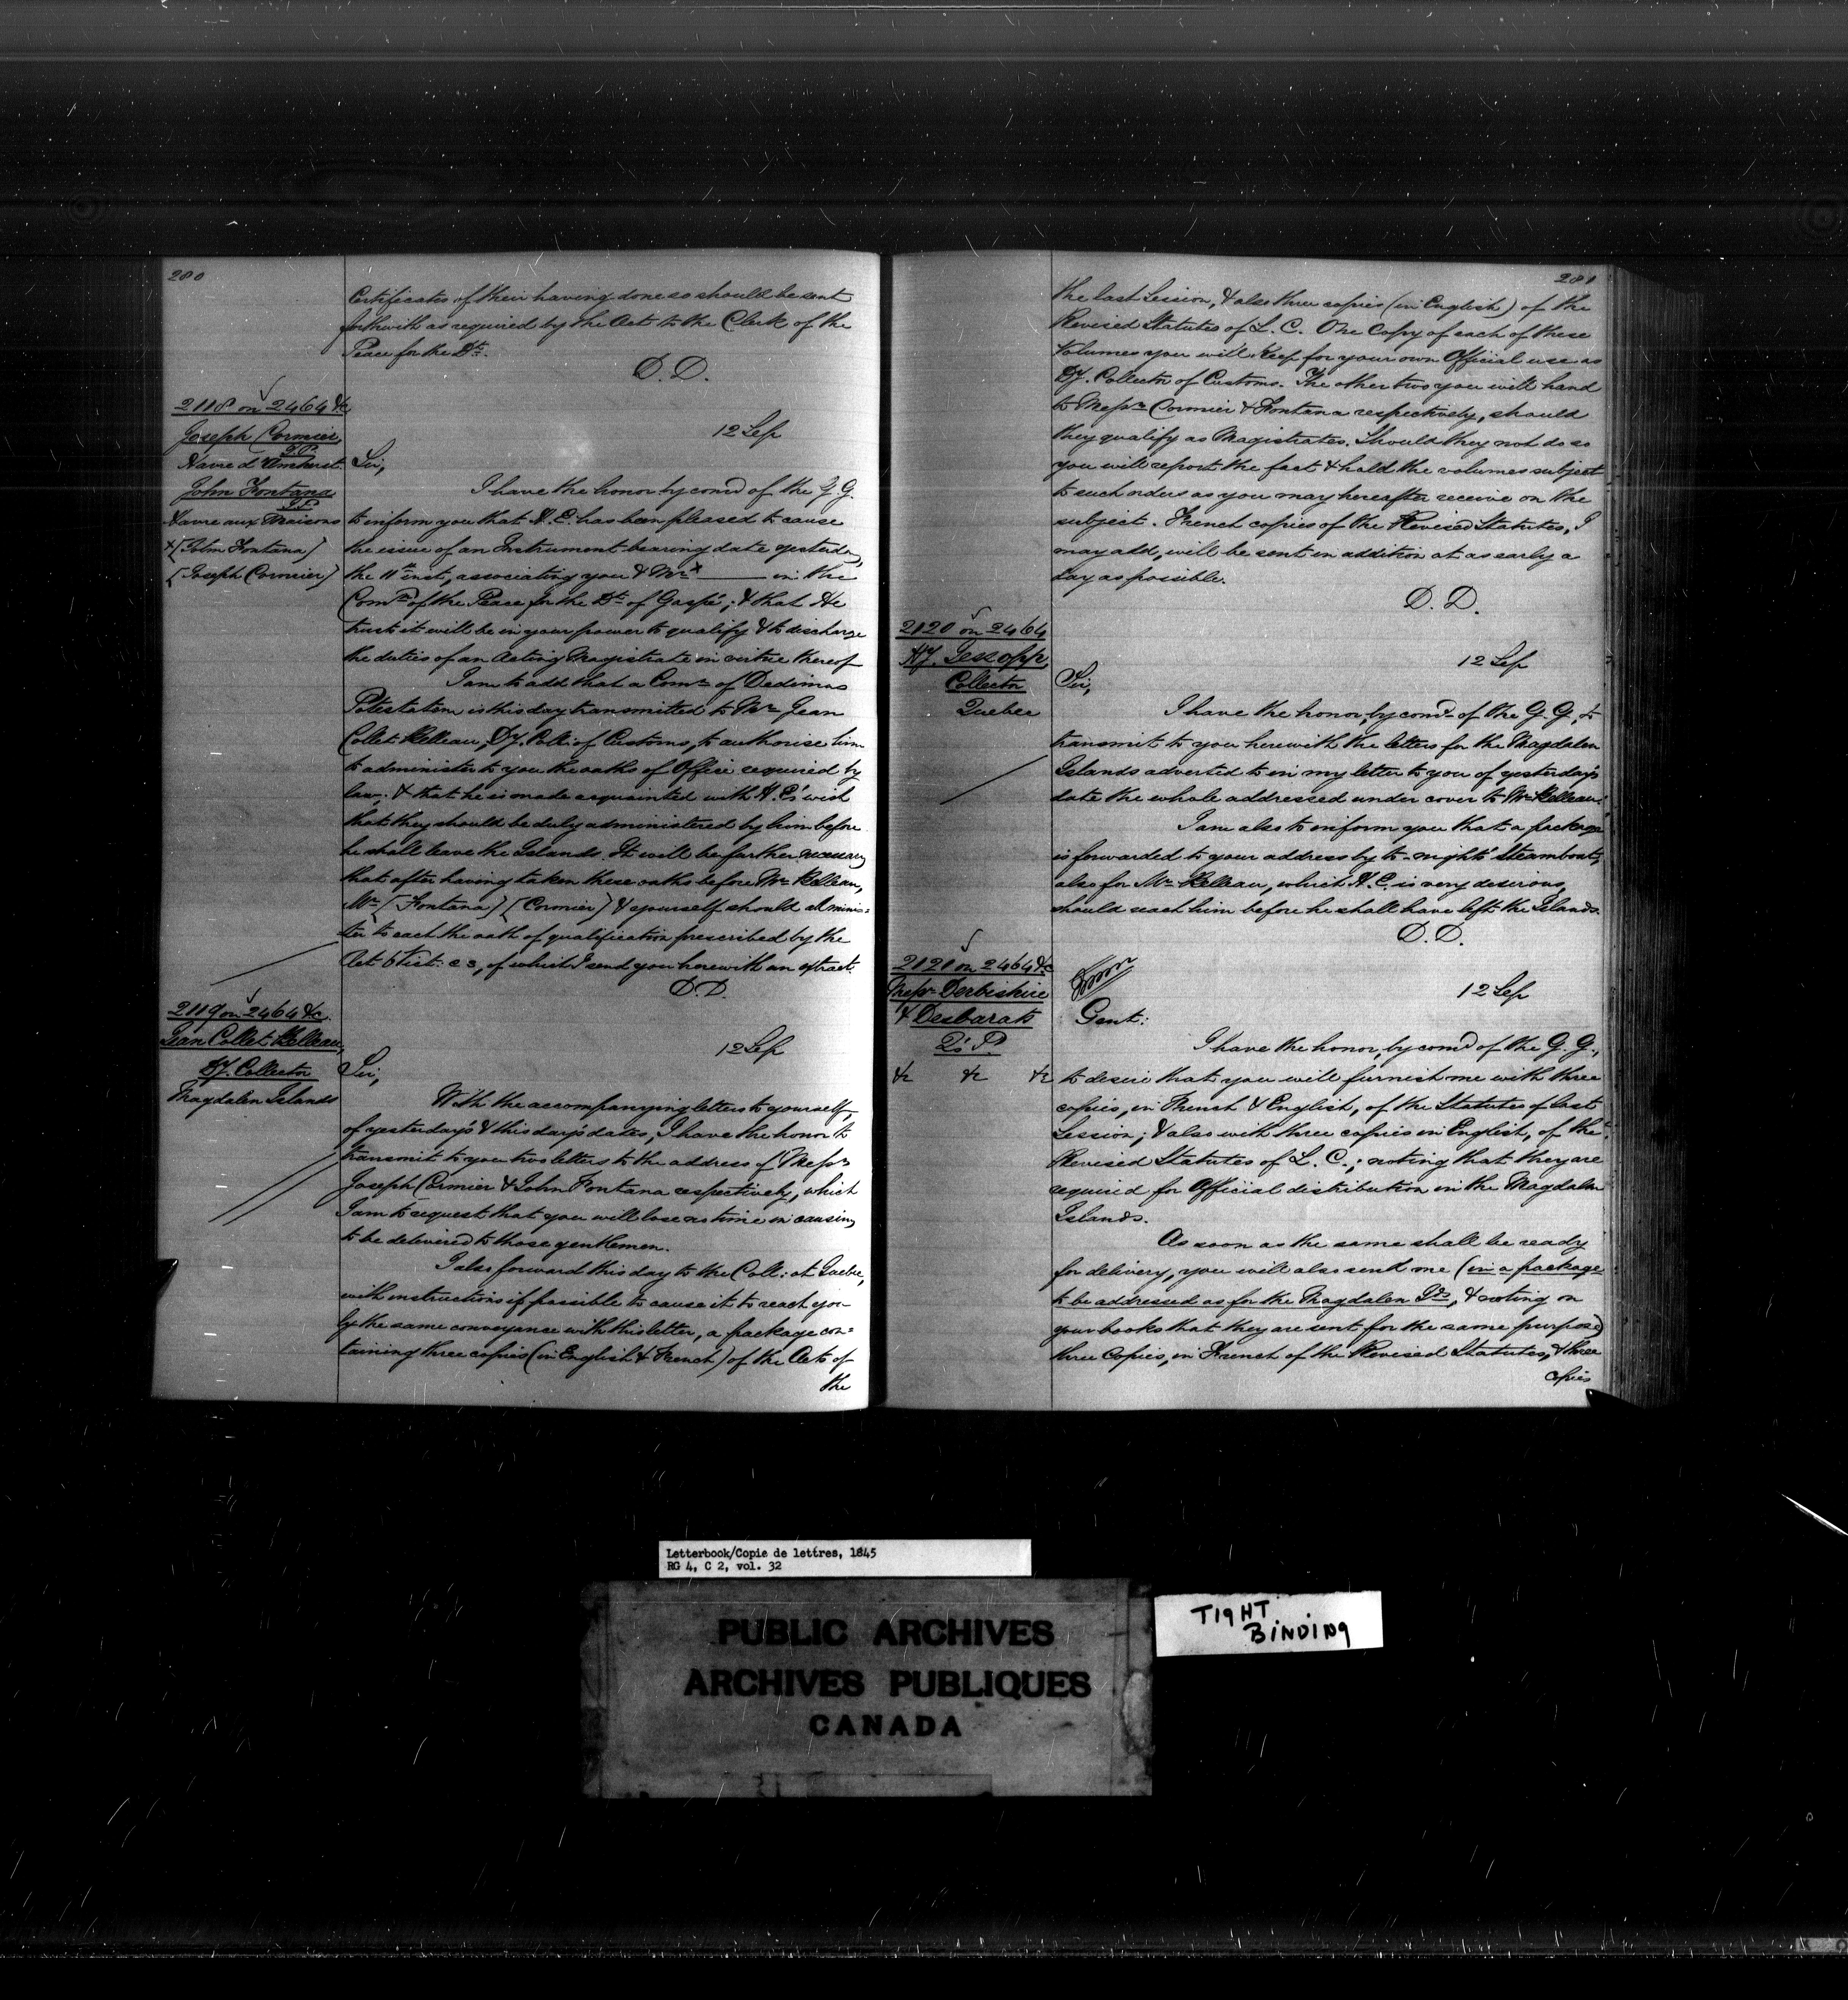 280
Certificates of their having done so should be sent
forthwith as required by the Act to the Clerk of the
Peace for the Dt.
D. D.
2118 on 2464 &c
Joseph Cormier
J.P.
Havre d'Amherst
John Fontana
J.P.
Havre aux Maisons
x [John Fontana]
[Joseph Cormier]
12 Sep
Sir,
I have the honor by comd of the G. G.
to inform you that H. E. has been pleased to cause
the issue of an Instrument bearing date yesterday,
the 11th inst, associating you & Mr x ____ in the
Comn of the Peace for the Dt of Gaspé; & that He
trusts it will be in your power to qualify & to discharge
the duties of an Acting Magistrate in virtue thereof
I am to add that a Comn of Dedimus
Potestatem is this day transmitted to Mr Jean
Collet Belleau, Dy. Coll: of Customs, to authorise him
to administer to you the oaths of Office required by
law; & that he is made acquainted with H. E's wish
that they should be duly administered by him before
he shall leave the Islands. It will be further necessary
that after having taken these oaths before Mr Belleau,
Mr [Fontana] [Cormier] & yourself should adminis=
ter to each the oath of qualification prescribed by the
Act 6 Vict: c 3, of which I send you herewith an extract.
D. D.
2119 on 2464 &c.
Jean Collet Belleau,
Dy. Collector
Magdalen Islands
12 Sep
Sir,
With the accompanying letters to yourself,
of yesterday's & this day's dates, I have the honor to
transmit to you two letters to the address of Messrs
Joseph Cormier & John Fontana respectively, which
I am to request that you will lose no time in causing
to be delivered to those gentlemen.
I also forward this day to the Coll: at Quebec,
with instructions if possible to cause it to reach you
by the same conveyance with this letter, a package con=
taining three copies (in English & French) of the Acts of
the
281
the last Session, & also three copies (in English) of the
Revised Statutes of L. C. One Copy of each of these
Volumes you will keep for your own Official use as
Dy. Collector of Customs. The other two you will hand
to Messrs Cormier & Fontana respectively, should
they qualify as Magistrates. Should they not do so
you will report the fact & hold the volumes subject
to such orders as you may hereafter receive on the
subject. French copies of the Revised Statutes, I
may add, will be sent in addition at as early a
day as possible.
D. D.
2120 on 2464
Hy. Jessopp,
Collector
Quebec
12 Sep
Sir,
I have the honor, by comd of the G. G., to
transmit to you herewith the letters for the Magdalen
Islands adverted to in my letter to you of yesterday's
date the whole addressed under cover to Mr Belleau.
I am also to inform you that a package
is forwarded to your address by to-night's steamboat,
also for Mr Belleau, which H. E. is very desirous
should reach him before he shall have left the Islands.
D. D.
2121 on 2464 &c
Messrs Derbishire
& Desbarats
Q's P.
&c &c &c
12 Sep
Gent:
I have the honor, by comd of the G. G.,
to desire that you will furnish me with three
copies, in French & English, of the Statutes of last
Session; & also with three copies in English, of the
Revised Statutes of L. C.; noting that they are
required for Official distribution in the Magdalen
Islands.
As soon as the same shall be ready
for delivery, you will also send me (in a package
to be addressed as for the Magdalen Ids, & noting on
your books that they are sent for the same purpose)
three Copies, in French of the Revised Statutes, & three
copies
Letterbook/Copie de lettres, 1845
RG 4, C 2, vol. 32
PUBLIC ARCHIVES
ARCHIVES PUBLIQUES
CANADA
TIGHT
BINDING